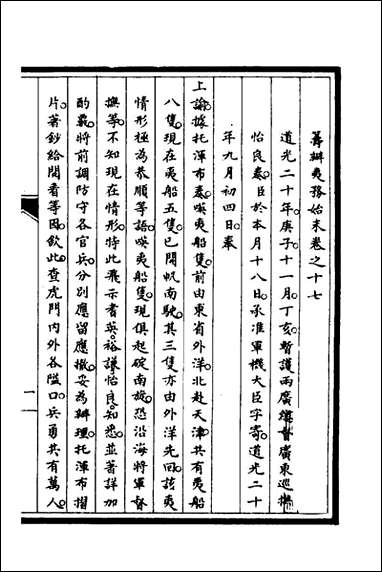 籌辦夷務始末卷之十七
道光二十年庚子十一月丁亥暫護兩廣總督廣東巡撫
怡良奏臣於本月十八日承准軍機大臣字寄道光二十
年九月初四日奉
上諭據托渾布奏㗸夷船隻前由東省外洋北赴天津共有夷船
八隻現在夷船五隻已開帆南駛其三隻亦由外洋先回該夷
情形極為恭順等語㗸夷船隻現俱起碇南旋恐沿海將軍督
撫等不知現在情形特此飛示耆英裕謙怡良知悉並著詳加
酌覈將前調防守各官兵分別應留應撤妥為辦理托渾布摺
片著鈔給閱看等因欽此查虎門內外各隘口兵勇共有萬人
一